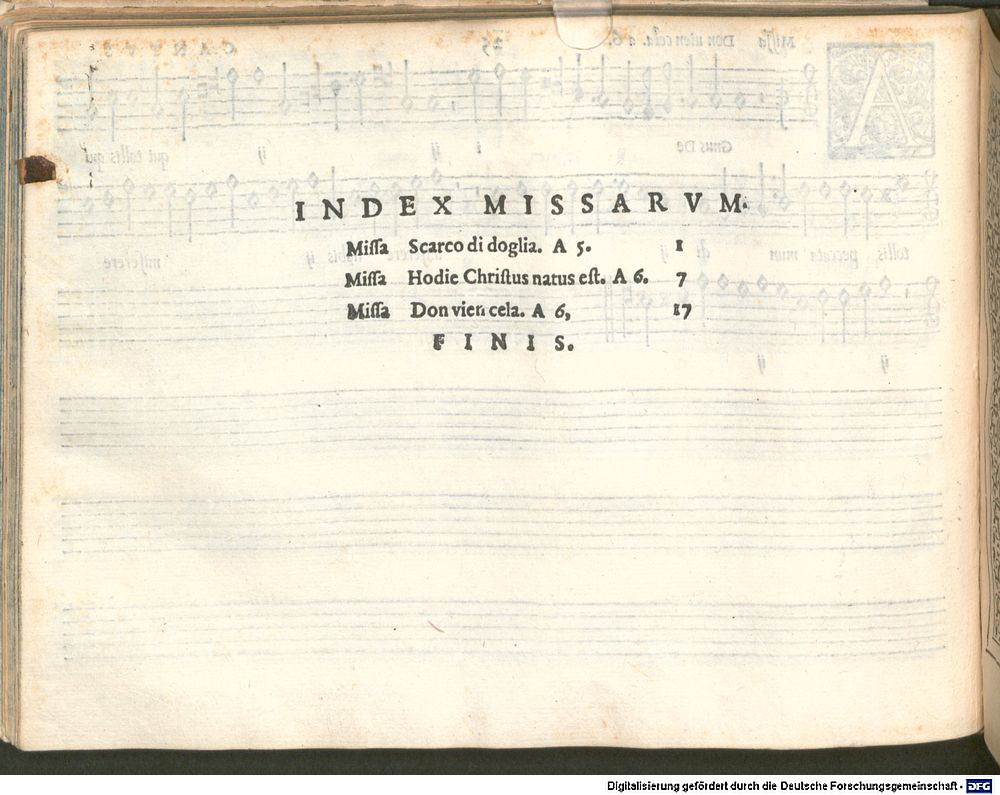 INDEX MISSARVM.
Miſſa Scarco di doglia. A 5. 1
Miſſa Hodie Chriſtus natus eſt. A 6. 7
Miſſa Don vien cela. A 6, 17
FINIS.
Digitalisierung gefördert durch die Deutsche Forschungsgemeinschaft - DFG